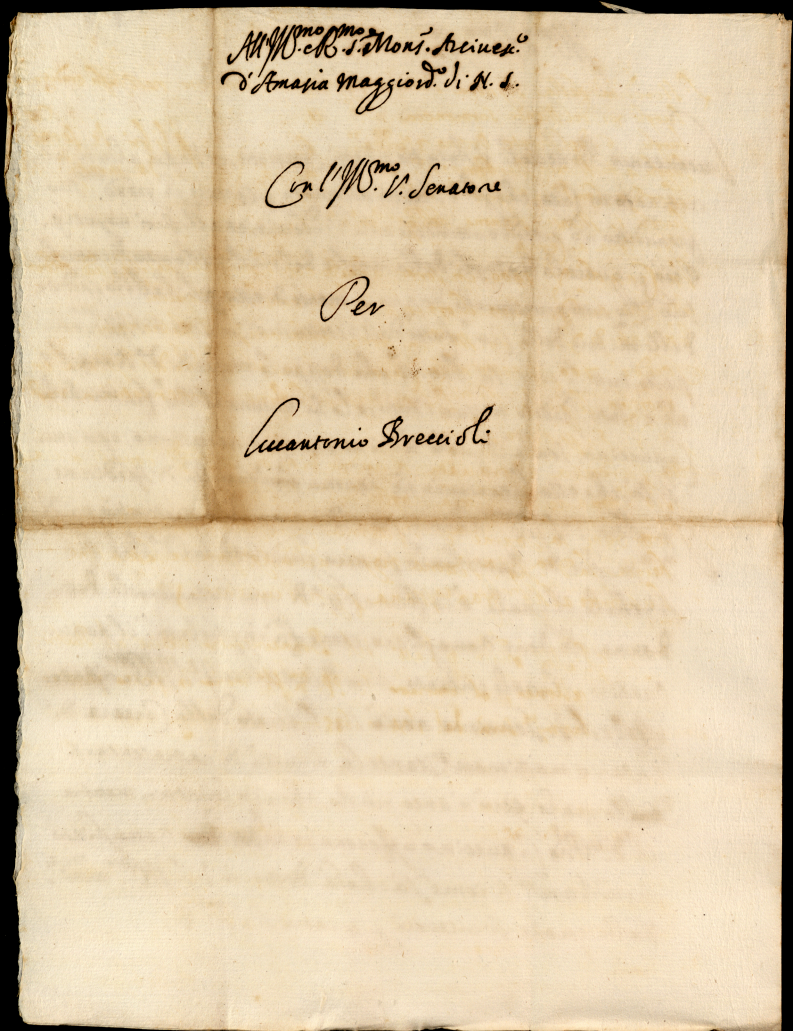 All' Ill.mo e R.mo S.re Mons.r Arciues.o
d'Amasia Maggiord.o di N. S.
Con l' Ill.mo S. Senatore
Per
Lucantonio Breccioli